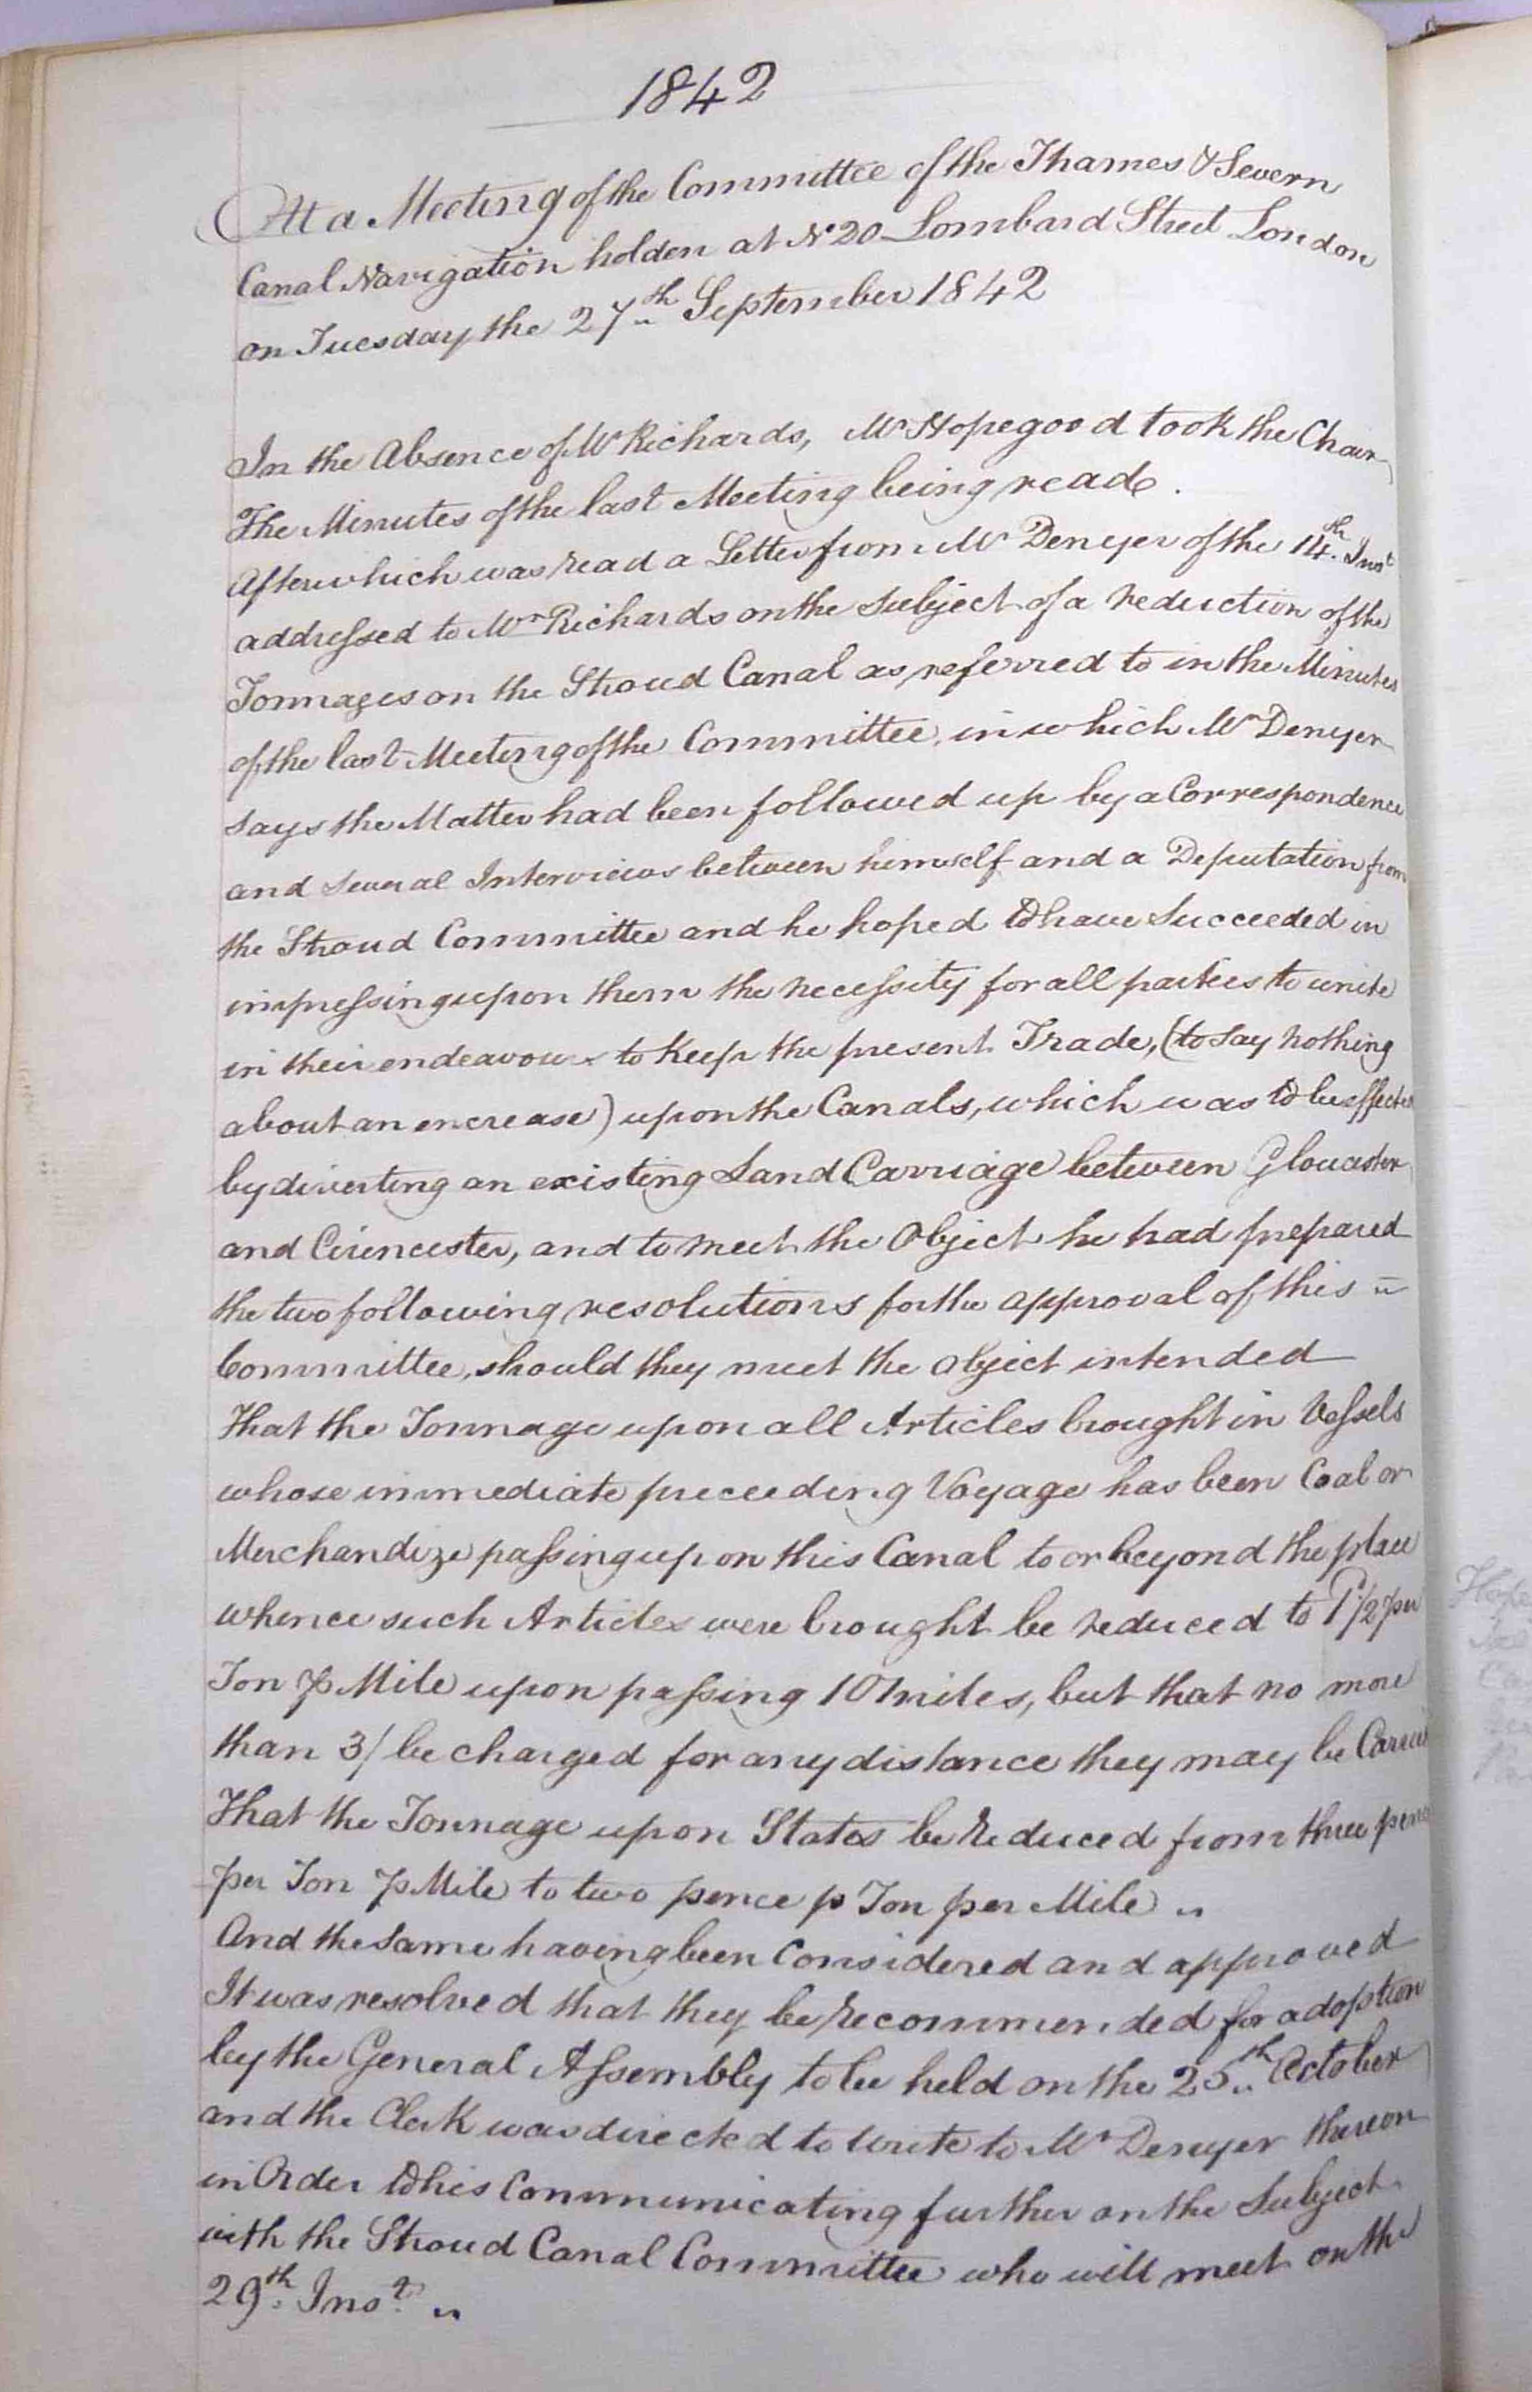 1842
At a Meeting of the Committee of the Thames & Severn
Canal Navigation holden at No 20 Lombard Street London
on Tuesday the 27th September 1842
In the Absence of Mr Richards, Mr Hopegood took the Chair
The Minutes of the last Meeting being read.
After which was read a Letter from Mr Denyer of the 14th Inst
addressed to Mr Richards on the subject of a reduction of the
Tonnages on the Stroud Canal as referred to in the Minutes
of the last Meeting of the Committee, in which Mr Denyer
says the Matter had been followed up by a Correspondence
and several Interviews between himself and a Deputation from
the Stroud Committee and he hoped to have succeeded in
impressing upon them the necessity for all parties to unite
in their endeavours to keep the present Trade, (to say nothing
about an encrease) upon the Canals, which was to be effected
by diverting an existing Land Carriage between Gloucester
and Cirencester, and to meet the Object he had prepared
the two following resolutions for the approval of this
Committee, should they meet the object intended
That the Tonnage upon all Articles brought in Vessels
whose immediate preceeding Voyage has been Coal or
Merchandize passing up on this Canal to or beyond the place
whence such Articles were brought be reduced to 1d 1/2 per
Ton p Mile upon passing 10 miles, but that no more
than 3/ be charged for any distance they may be Carried
That the Tonnage upon Slates be reduced from three pence
per Ton p Mile to two pence p Ton per Mile „
And the same having been Considered and approved
It was resolved that they be recommended for adoption
by the General Assembly to be held on the 25th October
and the Clerk was directed to write to Mr Denyer thereon
in Order to his Communicating further on the Subject
with the Stroud Canal Committee who will meet on the
29th Inst „